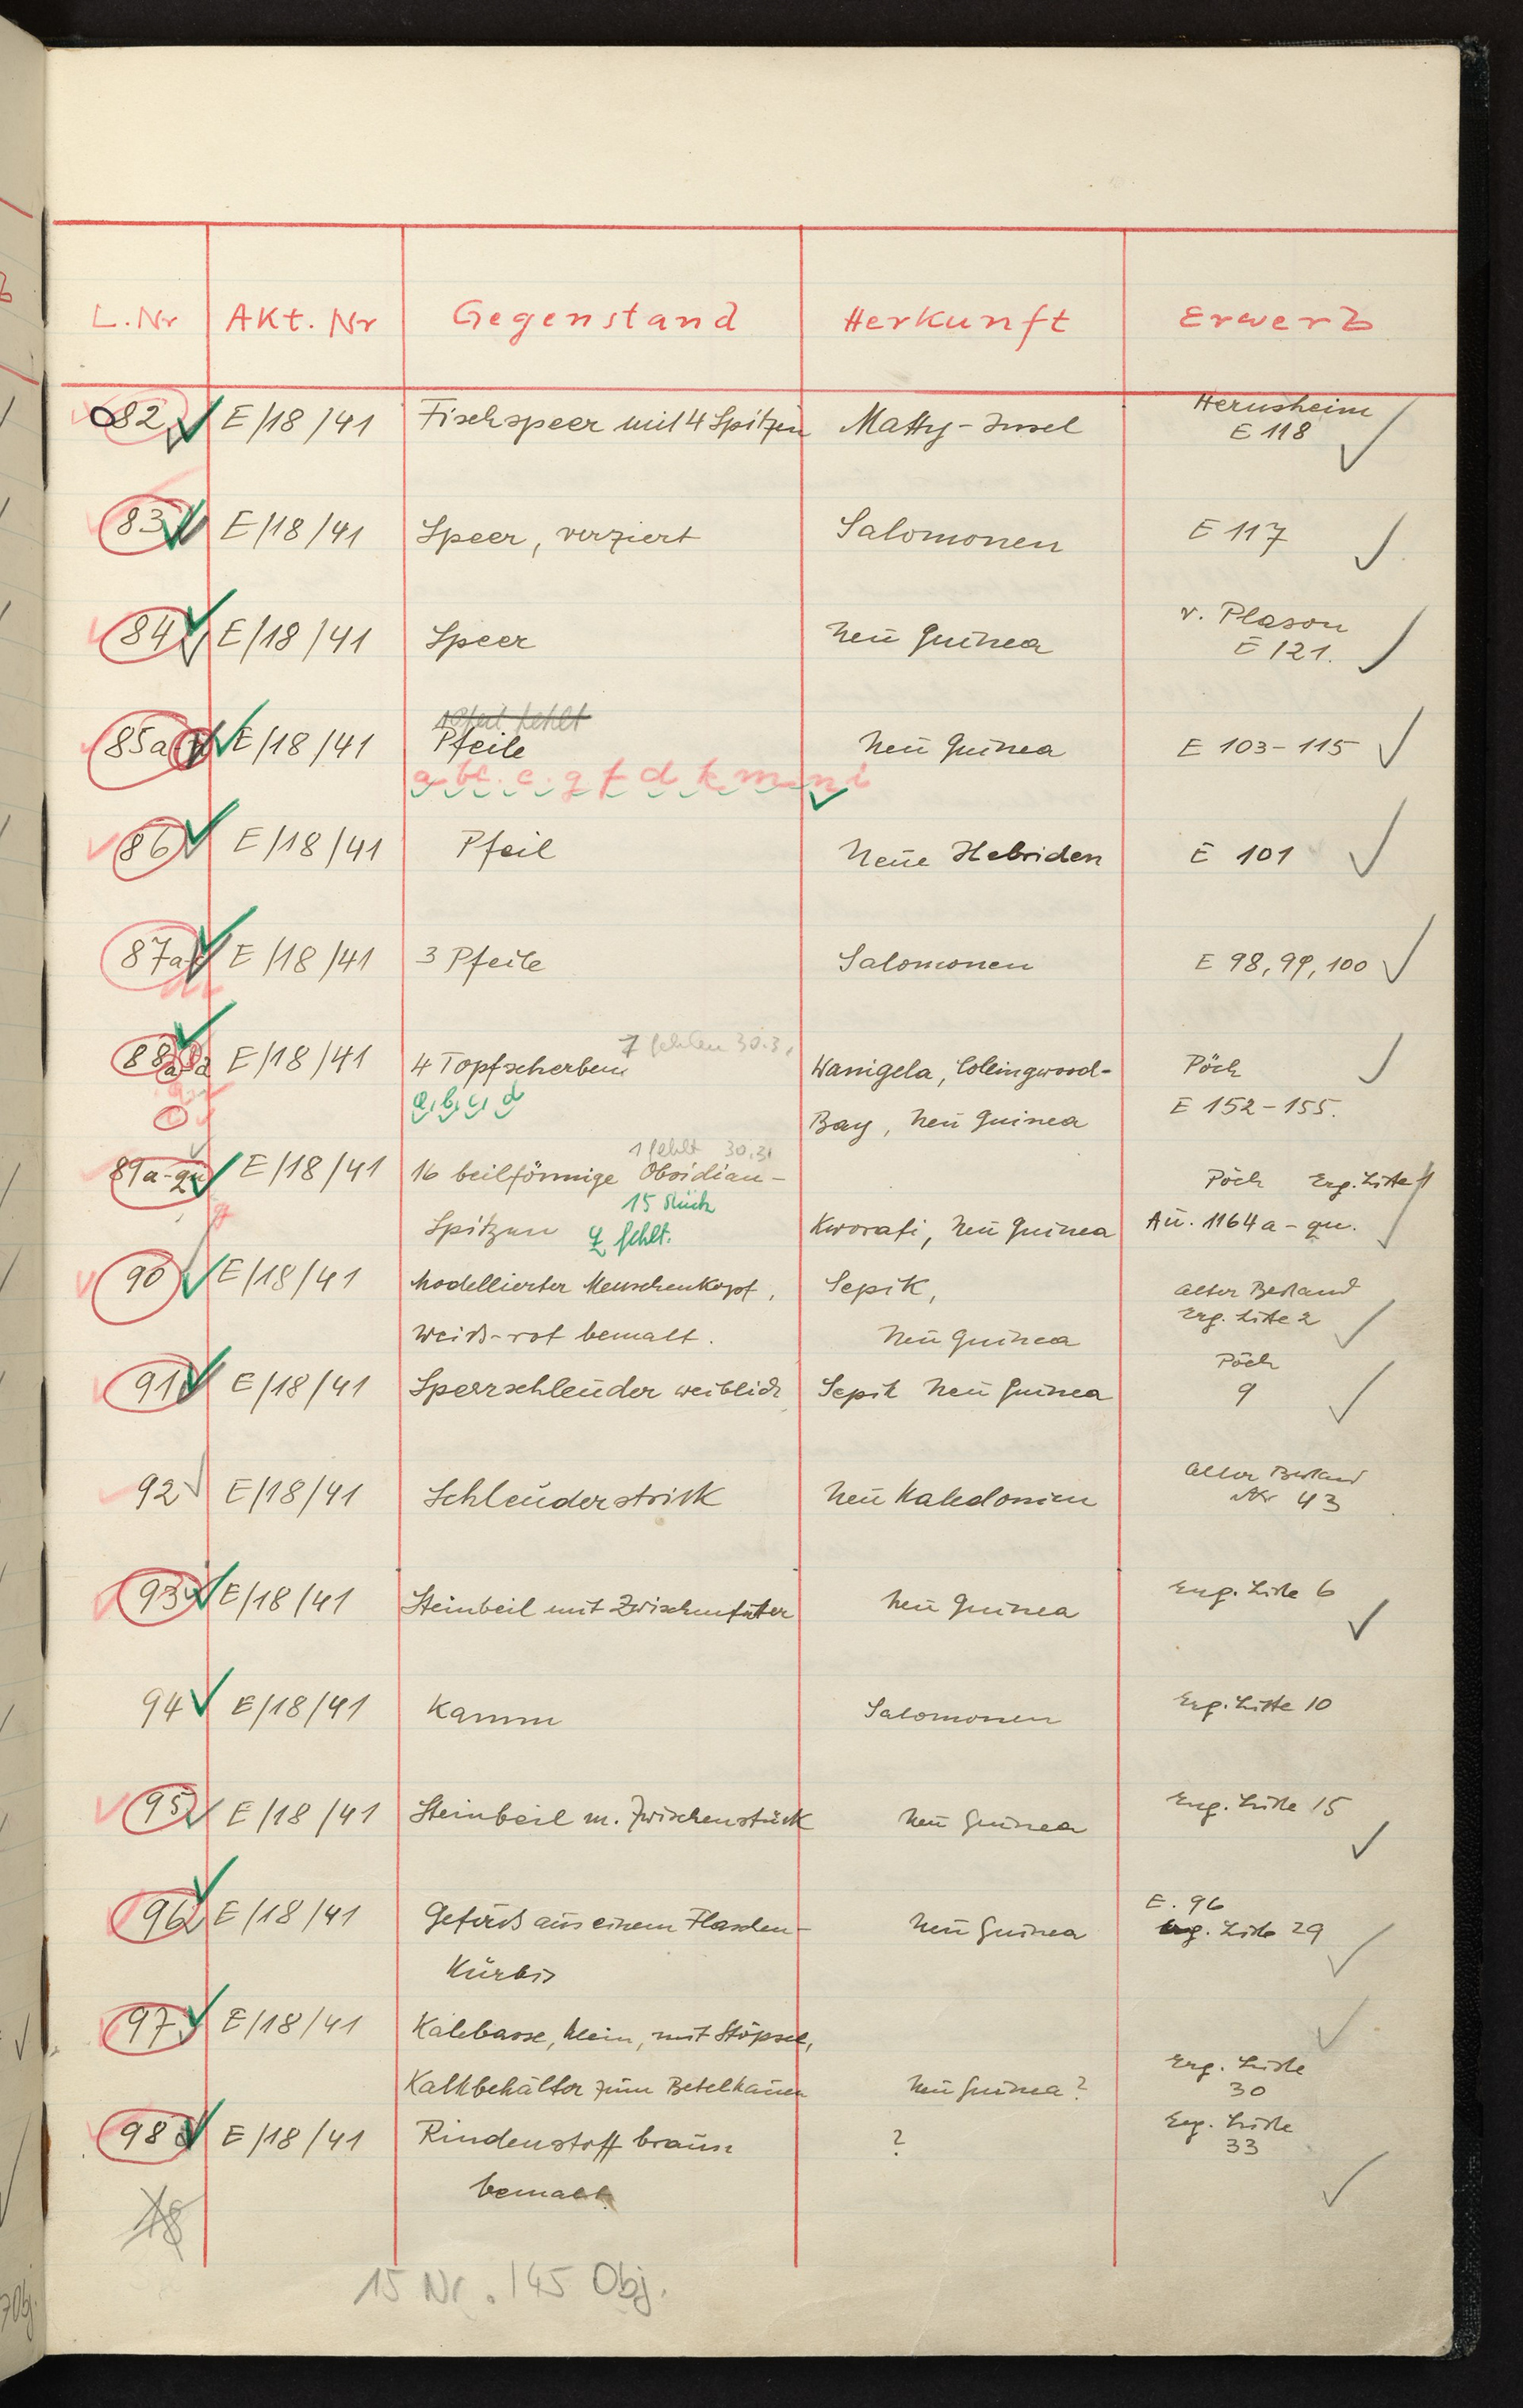 L.Nr AKt.Nr Gegenstand Herkunft Erwerb
82 E/18/41 Fischspeer mit 4 Spitzen Matty-Insel Hernsheim
E 118
83 E/18/41 Speer, verziert Salomonen E 117
84 E/18/41 Speer Neu Guinea v. Plason
E 121.
1 Pfeil fehlt
85a E/18/41 Pfeile Neu Guinea E 103-115
86 E/18/41 Pfeil Neue Hebriden E 101
87a E/18/41 3 Pfeile Salomonen E 98, 99, 100
7 fehlen 30.3.
88 a d E/18/41 4 Topfscherben Wanigela, Collingwood- Pöch
a, b, c, d Bay, Neu Guinea E 152-155.
1 fehlt 30.3.
89a-qu E/18/41 16 beilförmige Obsidian- Pöch Erg. Liste 11
15 Stück
Spitzen q fehlt. Kworafi, Neu Guinea Au. 1164 a-qu.
90 E/18/41 Modellierter Menschenkopf, Sepik, alter Bestand
Erg. Liste 2
weiß-rot bemalt. Neu Guinea
91 E/18/41 Speerschleuder weiblich Sepik Neu Guinea Pöch
9
92 E/18/41 Schleuderstrick Neu Kaledonien alter Bestand
Nr 43
93 E/18/41 Steinbeil mit Zwischenfutter Neu Guinea Erg. Liste 6
94 E/18/41 Kamm Salomonen Erg. Liste 10
95 E/18/41 Steinbeil m. Zwischenstück Neu Guinea Erg. Liste 15
96 E/18/41 Gefäß aus einem Flaschen- Neu Guinea E. 96
Erg. Liste 29
Kürbis
97 E/18/41 Kalebasse, klein, mit Stöpsel,
Kalkbehälter zum Betelkauen Neu Guinea? Erg. Liste
30
98 E/18/41 Rindenstoff braun ? Erg. Liste
33
bemalt
15 Nr. 145 Obj.